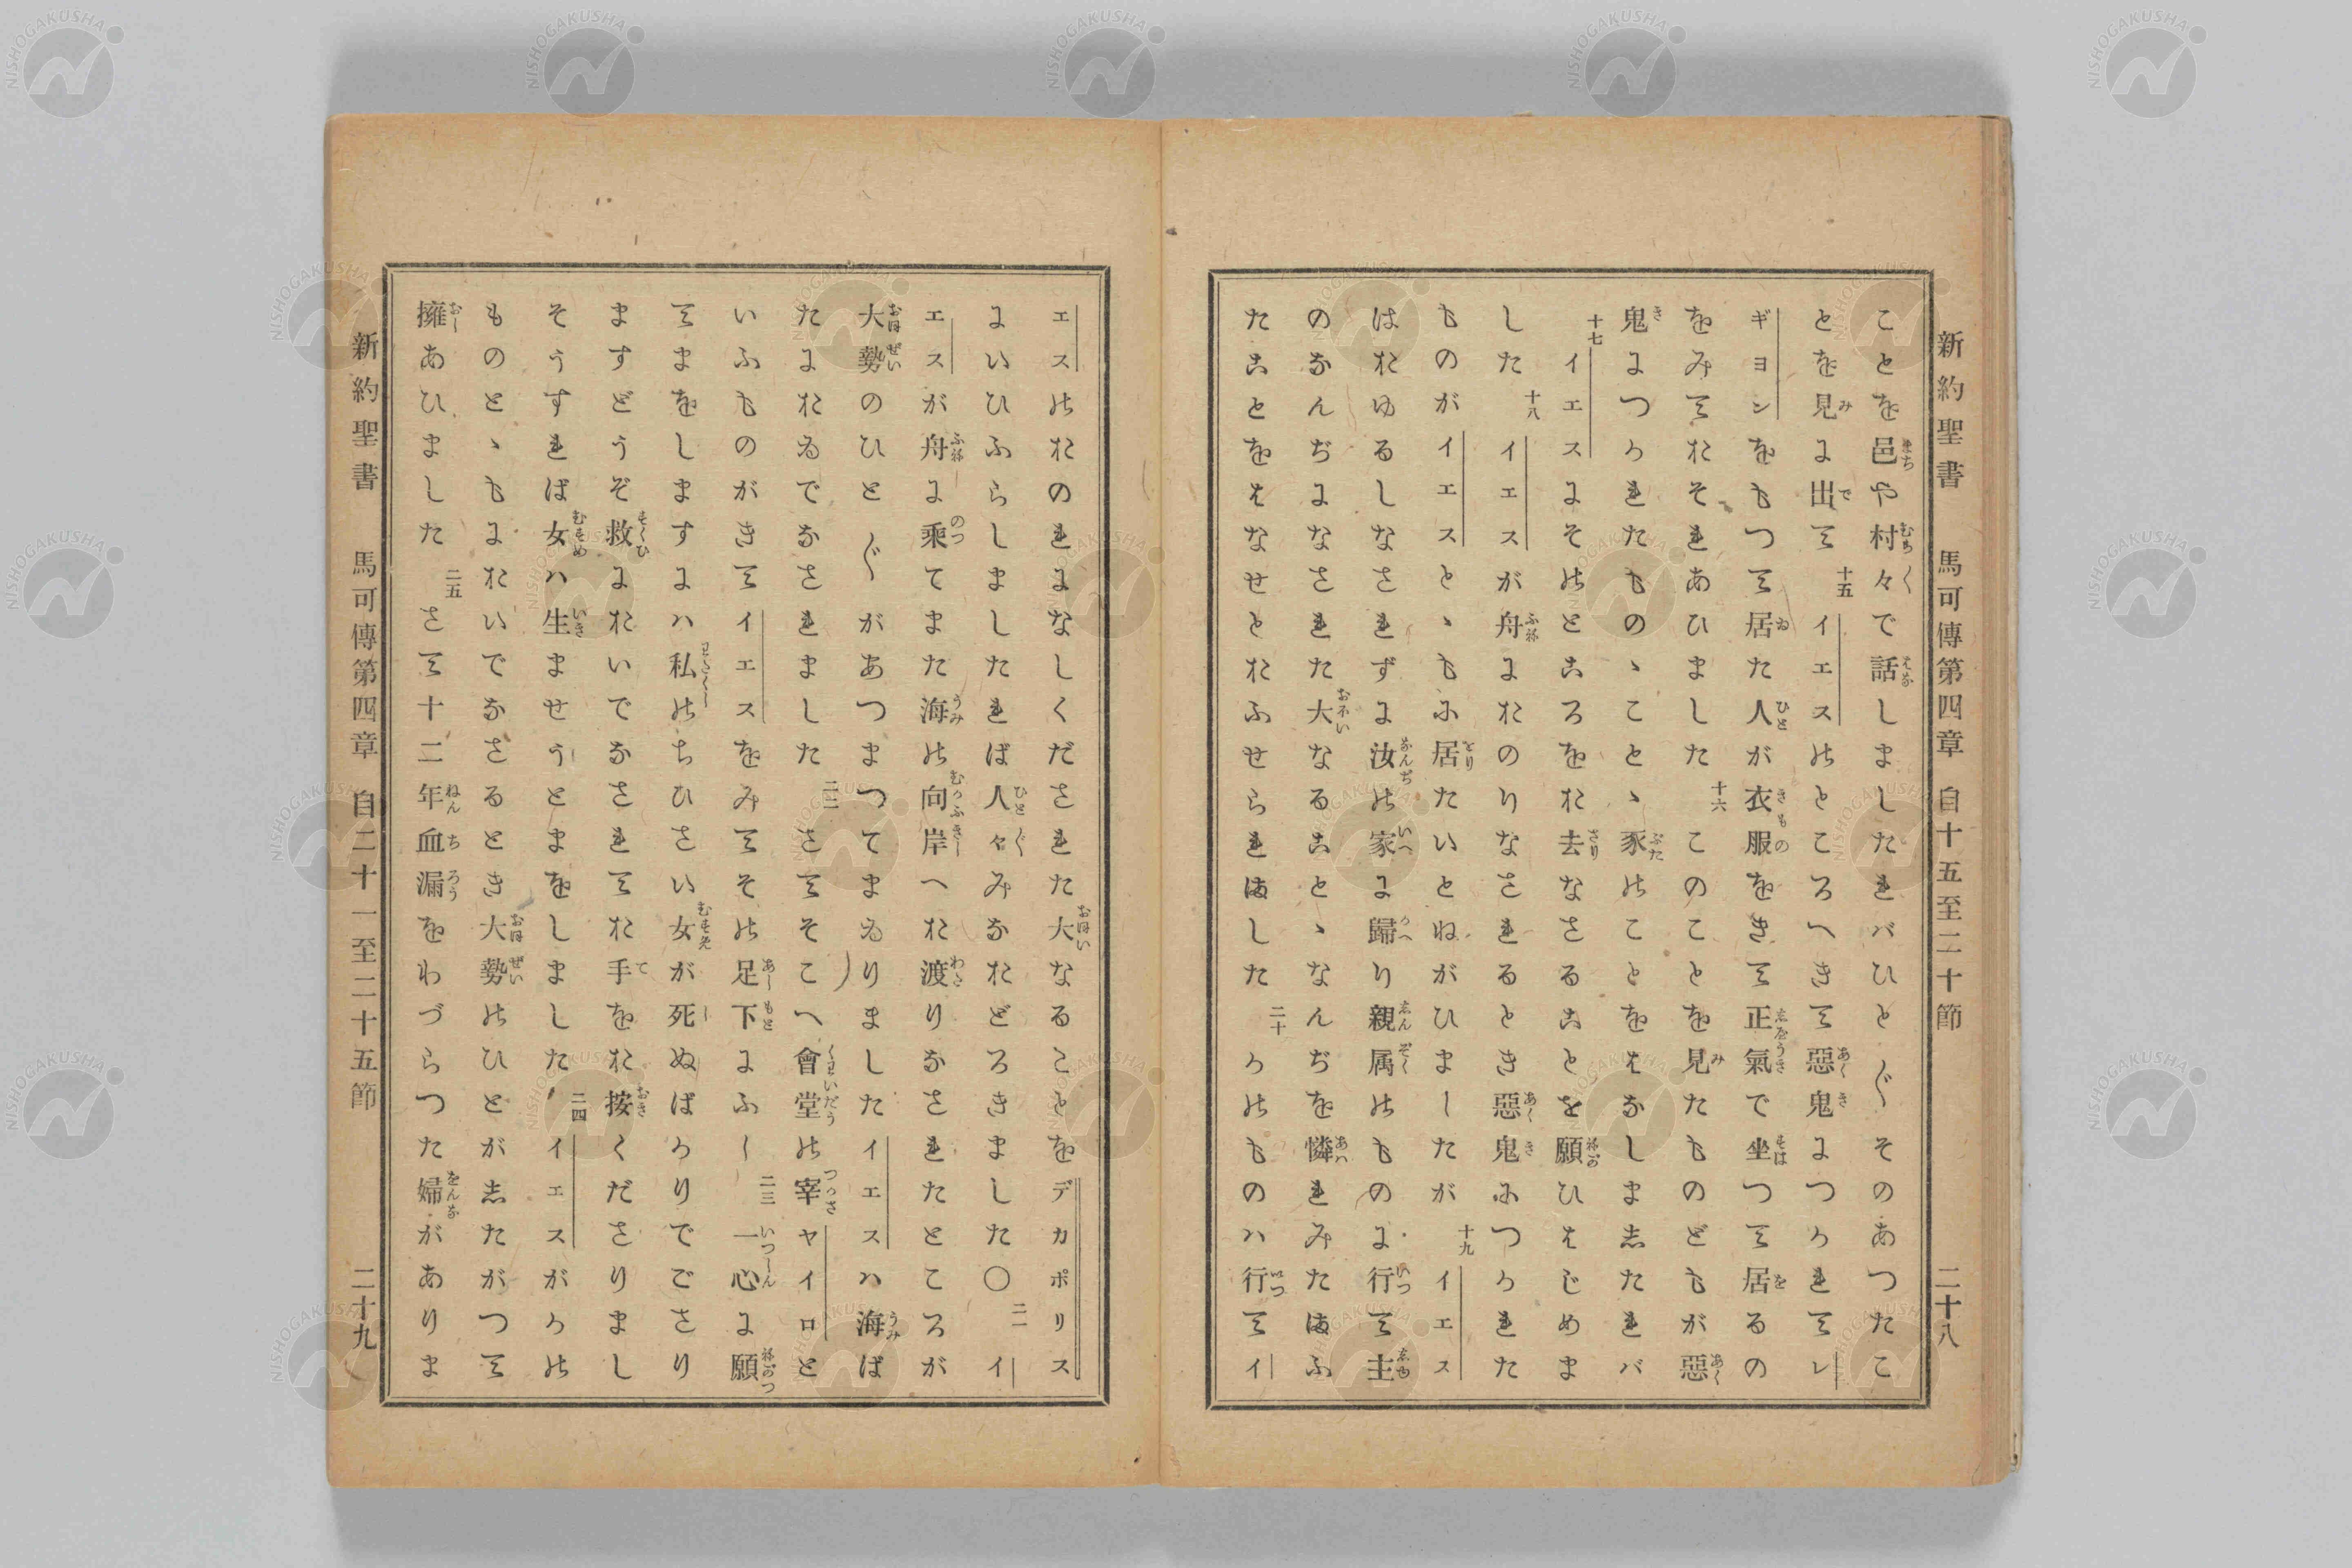 新約聖書 馬可傳第四章 自十五至二十節 二十八
ことを邑や村々で話しましたれバひと〴〵そのあつたこ
とを見に出て 十五 イエスのところへきて惡鬼につかれてレ
ギヨンをもつて居た人が衣服をきて正氣で坐つて居るの
をみておそれあひました 十六 このことを見たものどもが惡
鬼につかれたものゝことゝ豕のことをはなしましたれバ
十七 イエスにそのところをお去なさることを願ひはじめま
した 十八 イエスが舟におのりなされるとき惡鬼につかれた
ものがイエスとゝもに居たいとねがひましたが 十九 イエス
はおゆるしなされずに汝の家に歸り親属のものに行て主
のなんぢになされた大なることゝなんぢを憐れみたまふ
たことをはなせとおふせられました 二十 かのものハ行てイ
エスのおのれになしくだされた大なることをデカポリス
にいひふらしましたれば人々みなおどろきました〇 二一 イ
エスが舟に乘てまた海の向岸へお渡りなされたところが
大勢のひと〴〵があつまつてまゐりましたイエスハ海ば
たにおゐでなされました 二二 さてそこへ會堂の宰ヤイロと
いふものがきてイエスをみてその足下にふし 二三 一心に願
てまをしますにハ私のちひさい女が死ぬばかりでござり
ますどうぞ救においでなされてお手をお按くださりまし
そうすれば女ハ生ませうとまをしました 二四 イエスがかの
ものとゝもにおいでなさるとき大勢のひとがしたがつて
擁あひました 二五 さて十二年血漏をわづらつた婦がありま
新約聖書 馬可傳第四章 自二十一至二十五節 二十九
NISHOGAKUSHA